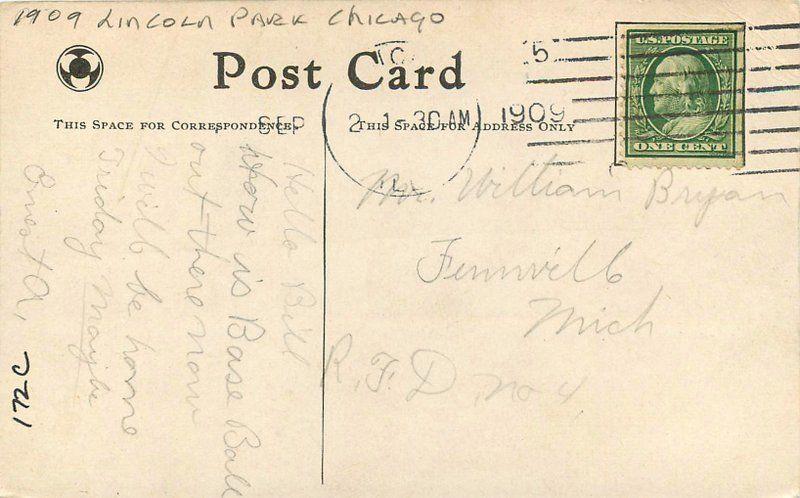 1909 LINCOLN PARK CHICAGO
Post Card
U.S. POSTAGE
ONE CENT
5
SEP 2 1-30 AM 1909
THIS SPACE FOR CORRESPONDENCE.
THIS SPACE FOR ADDRESS ONLY
Hello Bill
How is Base Ball
out there now
I will be home
Friday Maybe
Ernest A,
Mr. William Bryan
Fennville
Mich
R. F. D. no 4
172C